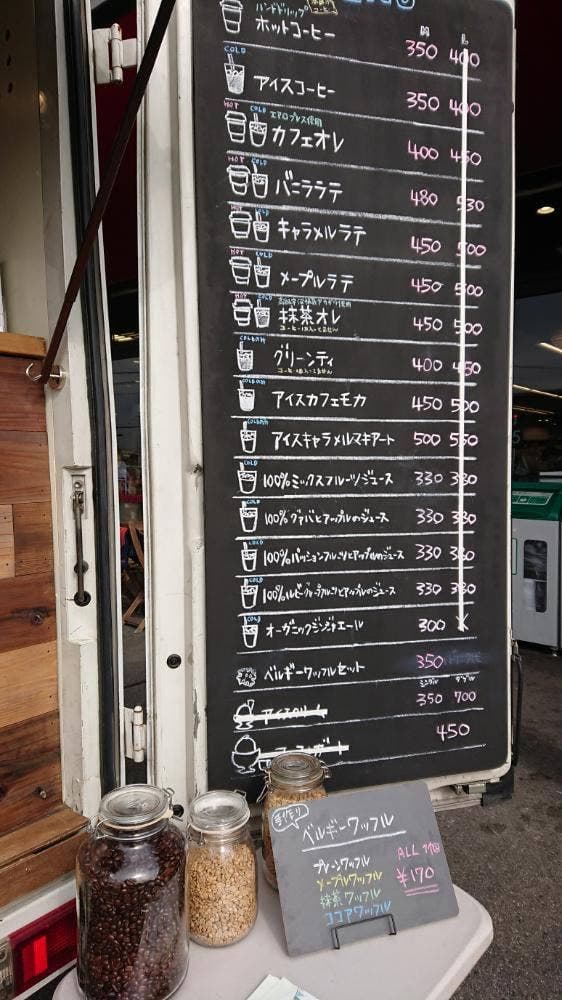 ハンドドリップ
ホットコーヒー 350 400
M L
COLD
アイスコーヒー 350 400
HOT COLD エアロプレス使用
カフェオレ 400 450
HOT COLD
バニララテ 480 530
HOT COLD
キャラメルラテ 450 500
HOT COLD
メープルラテ 450 500
HOT COLD
抹茶オレ 450 500
コーヒーは入ってません
COLD
グリーンティ 400 450
コーヒーは入ってません
COLD
アイスカフェモカ 450 500
COLD
アイスキャラメルマキアート 500 550
COLD
100%ミックスフルーツジュース 330 380
COLD
100%グァバとアップルのジュース 330 380
COLD
100%パッションフルーツとアップルのジュース 330 380
COLD
100%ルビーグレープフルーツとアップルのジュース 330 380
COLD
オーガニックジンジャエール 300
ベルギーワッフルセット 350
シングル ダブル
アイスクリーム 350 700
450
手作り
ベルギーワッフル
プレーンワッフル
メープルワッフル
抹茶ワッフル
ココアワッフル
ALL 1個
¥170